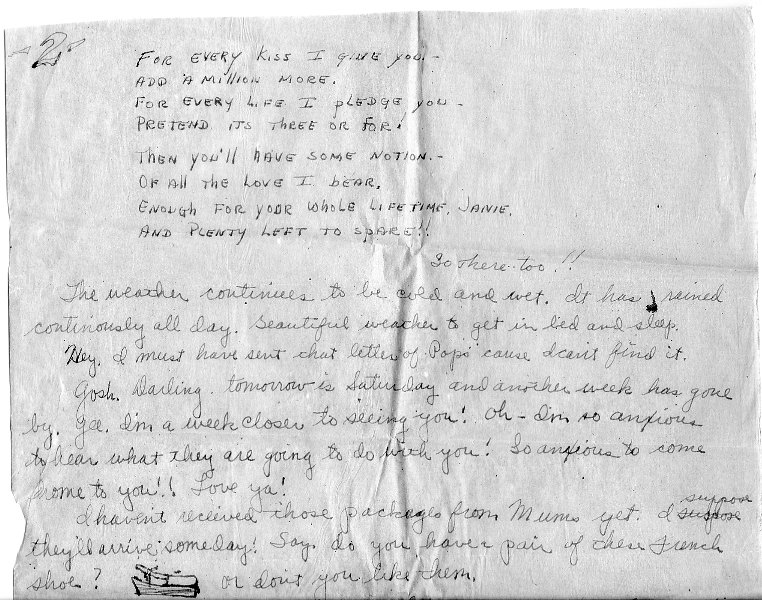 -2-
FOR EVERY KISS I GIVE YOU.-
ADD A MILLION MORE.
FOR EVERY LIFE I PLEDGE YOU -
PRETEND ITS THREE OR FOR!
THEN YOU'll HAVE SOME NOTION.-
OF All THE LOVE I BEAR,
ENOUGH FOR YOUR WHOLE LIFETIME, JANIE,
AND PLENTY LEFT TO SPARE!!
So there too.!!
The weather continues to be cold and wet. It has rained
continously all day. Beautiful weather to get in bed and sleep.
Hey, I must have sent that letter of Pops cause I can't find it.
Gosh, Darling, tomorrow is Saturday and another week has gone
by. Gee, I'm a week closer to seeing you! Oh - I'm so anxious
to hear what they are going to do with you! So anxious to come
home to you!! Love ya!
I haven't received those packages from Mums yet. I suppose
they'll arrive someday! Say, do you have a pair of these French
shoe? or don't you like them.